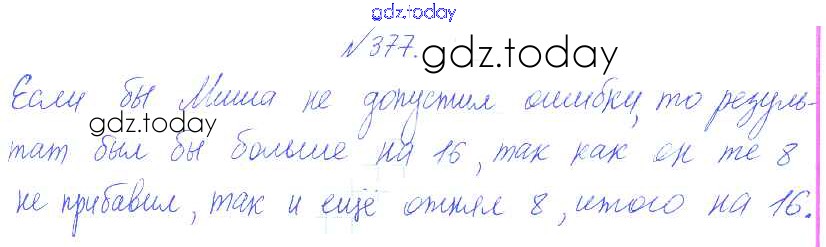 gdz.today
№377.
gdz.today
Если бы Миша не допустил ошибку, то резуль-
gdz.today
тат был бы больше на 16, так как он те 8
не прибавил, так и ещё отнял 8, итого на 16.